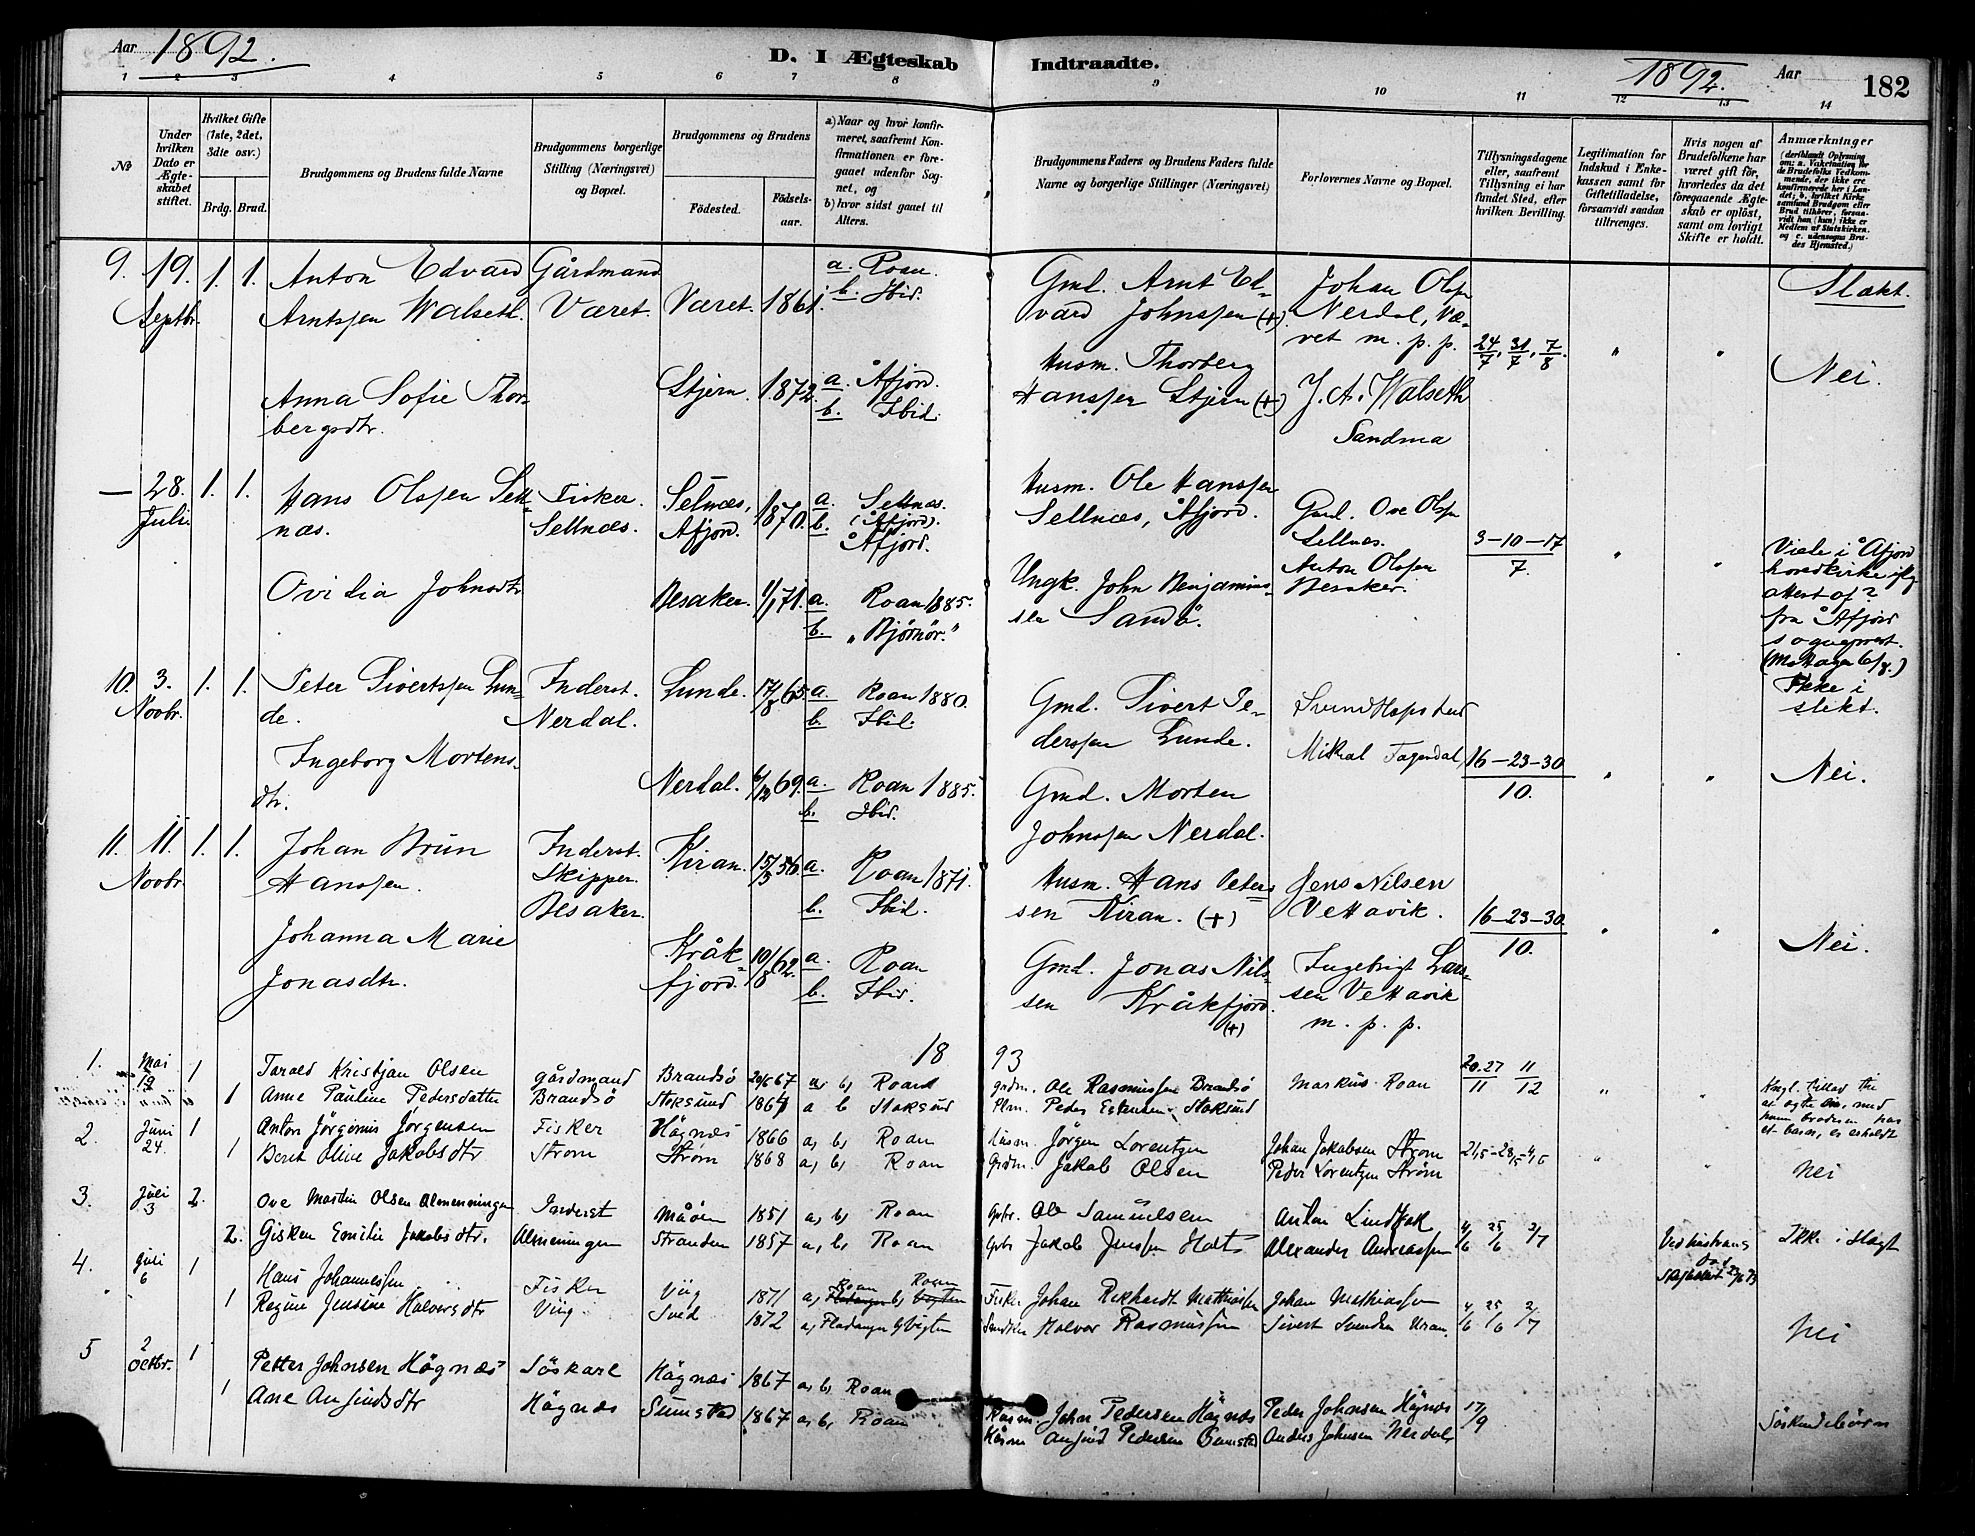 Aar 1892. D. I Ægteskab Indtraadte. 1892. Aar 182
1 2 3 4 5 6 7 8 9 10 11 12 13 14
No
Under hvilken Dato er Ægteskabet stiftet.
Hvilket Gifte (1ste, 2det, 3dte osv.)
Brdg. Brud.
Brudgommens og Brudens fulde Navne
Brudgommens borgerlige Stilling (Næringsvei) og Bopæl.
Brudgommens og Brudens
Fødested. Fødselsaar.
a) Naar og hvor konfirmeret, saafremt Konfirmationen er foregaaet udenfor Sognet, og
b) hvor sidst gaaet til Alters.
Brudgommens Faders og Brudens Faders fulde Navne og borgerlige Stillinger (Næringsvei)
Forlovernes Navne og Bopæl.
Tillysningsdagene eller, saafremt Tillysning ei har fundet Sted, efter hvilken Bevilling.
Legitimation for Indskud i Enkekassen samt for Giftetilladelse, forsaavidt saadan tiltrænges.
Hvis nogen af Brudefolkene har været gift før, hvorledes da det foregaaende Ægteskab er opløst, samt om lovligt Skifte er holdt.
Anmærkninger
(deriblandt Oplysning om: a. Vakcination for de Brudefolks Vedkommende, der ikke ere konfirmerede her i Landet; b. hvilket Kirkesamfund Brudgom eller Brud tilhører, forsaavidt han (hun) ikke er Medlem af Statskirken, og c. udensogns Brudes Hjemsted.)
9. 19. 1. 1. Anton Edvard Gårdmand a. Roan. Gmd. Arnt Ed- Johan Olsen Slækt.
Septbr. Arntssen Walseth. Været. Været. 1861. b. Ibid. vard Johnssen (+) Nerdal, Væ-
ret m. p. p. 24/7, 31/7, 7/8. " "
Anna Sofie Thor- Stjern. 1872. a. Åfjord. Husm. Thorberg Nei.
bergsdtr. b. Ibid. Hanssen Stjern (+) J. A. Walseth
Sandma
— 28. 1. 1. Hans Olssen Sell- Fisker. Selnæs, 1870. a. Sellnæs. Husm. Ole Hanssen
Juli næs. Sellnæs. Afjord. b. (Åfjord). Sellnæs, Åfjord. Gmd. Ove Olsen
Åfjord. Sellnæs. 3-10-17 / 7. " " Viede i Åfjord
Ovidia Johnsdtr Besaker. 1/1 71. a. Roan 1885. Ungk. John Benjamins- Anton Olssen hovedkirke iflg
b. "Bjørnør." sen Sandö. Besaker. attest af ?
fra Åfjord
sogneprest.
(Mottagen 6/8.)
10. 3. 1. 1. Peter Sivertssen Lun- Inderst. Lunde. 17/8 65. a. Roan 1880. Gmd. Sivert Pe- Ikke i
Novbr. de. Nerdal. b. Ibid. derssen Lunde. slekt.
Ingeborg Mortens- Mikal 16-23-30 / 10. " " Nei.
dtr. Nerdal. 69. a. Roan 1885. Gmd. Morten
b. Ibid. Johnssen Nerdal.
11. 11. 1. 1. Johan Brun Inderst. Kiran. 15/3 56. a. Roan 1871. Husm. Hans Peters- Jens Nilsen
Novbr. Hanssen. Skipper. b. Ibid. sen Kiran. (+) Vettavik. 16-23-30 / 10. " "
Besaker.
Johanna Marie Kråk- 10/8 62. a. Roan Gmd. Jonas Nils- Ingebrigt Lars- Nei.
Jonasdtr. fjord. b. Ibid. sen Kråkfjord. (+) sen Vettavik
m. p. p.
18 93
1. Mai 12 1 Tarald Kristjan Olsen gårdmand Brandsö 20/6 67 a, b, Roan grdm. Ole Rasmussen Brandsö Markus Roan 20. 27 / 11 11 / 12 "
1 Anne Pauline Pedersdatter Brandsö Stoksund 1867 a b Stoksund Plm. Peder Estensen Stoksund Kngl. tillad til
at ægte
et barn, er erholdt
2. Juni 24. 1 Anton Jörginus Jörgensen Fisker Högnæs 1866 a, b, Roan Husm. Jörgen Lorentzen Johan Jakobsen Strøm 21/5 - 28/5 - 4/6
1 Beret Olive Jakobsdtr Strøm Strøm 1868 a, b, Roan Grdm. Jakob Olsen Peder Lorentzen Strøm Nei
3. Juli 3 2. Ove Martin Olsen Almenningen Inderst Måöen 1851 a, b, Roan Gbr. Ole Samuelsen Anton Lindbak
2. Gisken Emilie Jakobsdtr. Almenningen Stranden 1857 a, b, Roan Gbr Jakob Jenssen Hals Alexander Andreassen 4/6 25/6 2/7 Ikke i Slægt
4. Juli 6 1 Hans Johannessen Fisker Viig 1871 a, Roan b, Roan Fisker Johan Rikhardt Matthiassen Johan Mathiassen 4/6 25/6 2/7
1 Regine Jensine Halversdtr Viig Sved 1872 a, Fladanger b, Vigten Halvor Rasmussen Sivert Svendsen Uran. Nei
5 2 Octbr. 1 Petter Johnsen Högnæs Söskarl Högnæs 1867 a, b, Roan Husm. John Pedersen Högnæs Peder Johnsen Högnæs 17/9
1 Ane Anfindsdtr Högnæs Sumstad 1867 a, b, Roan Husm Anfind Pedersen Sumstad Anders Johnsen Nerdal Söskendebörn